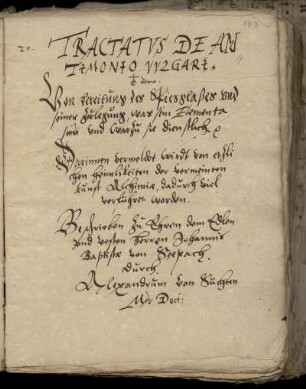 20.
TRACTATVS DE AN
TIMONIO VVLGARI.
Von bereitung des Spiesglases vnd
seiner zulegung was sein Elementa
sein vnd wozu sie dienstlich
Darinnen vermeldet wirdt von etli
chen heimlikeiten der vermeinten
kunst Alchimia, dadurch viel
verfuhret worden.
Beschrieben Zu Ehren dem Edlen
vnd vesten Herren Johannis
Baptista von Seebach,
durch
Alexandrum von Suchten
Med Doct: